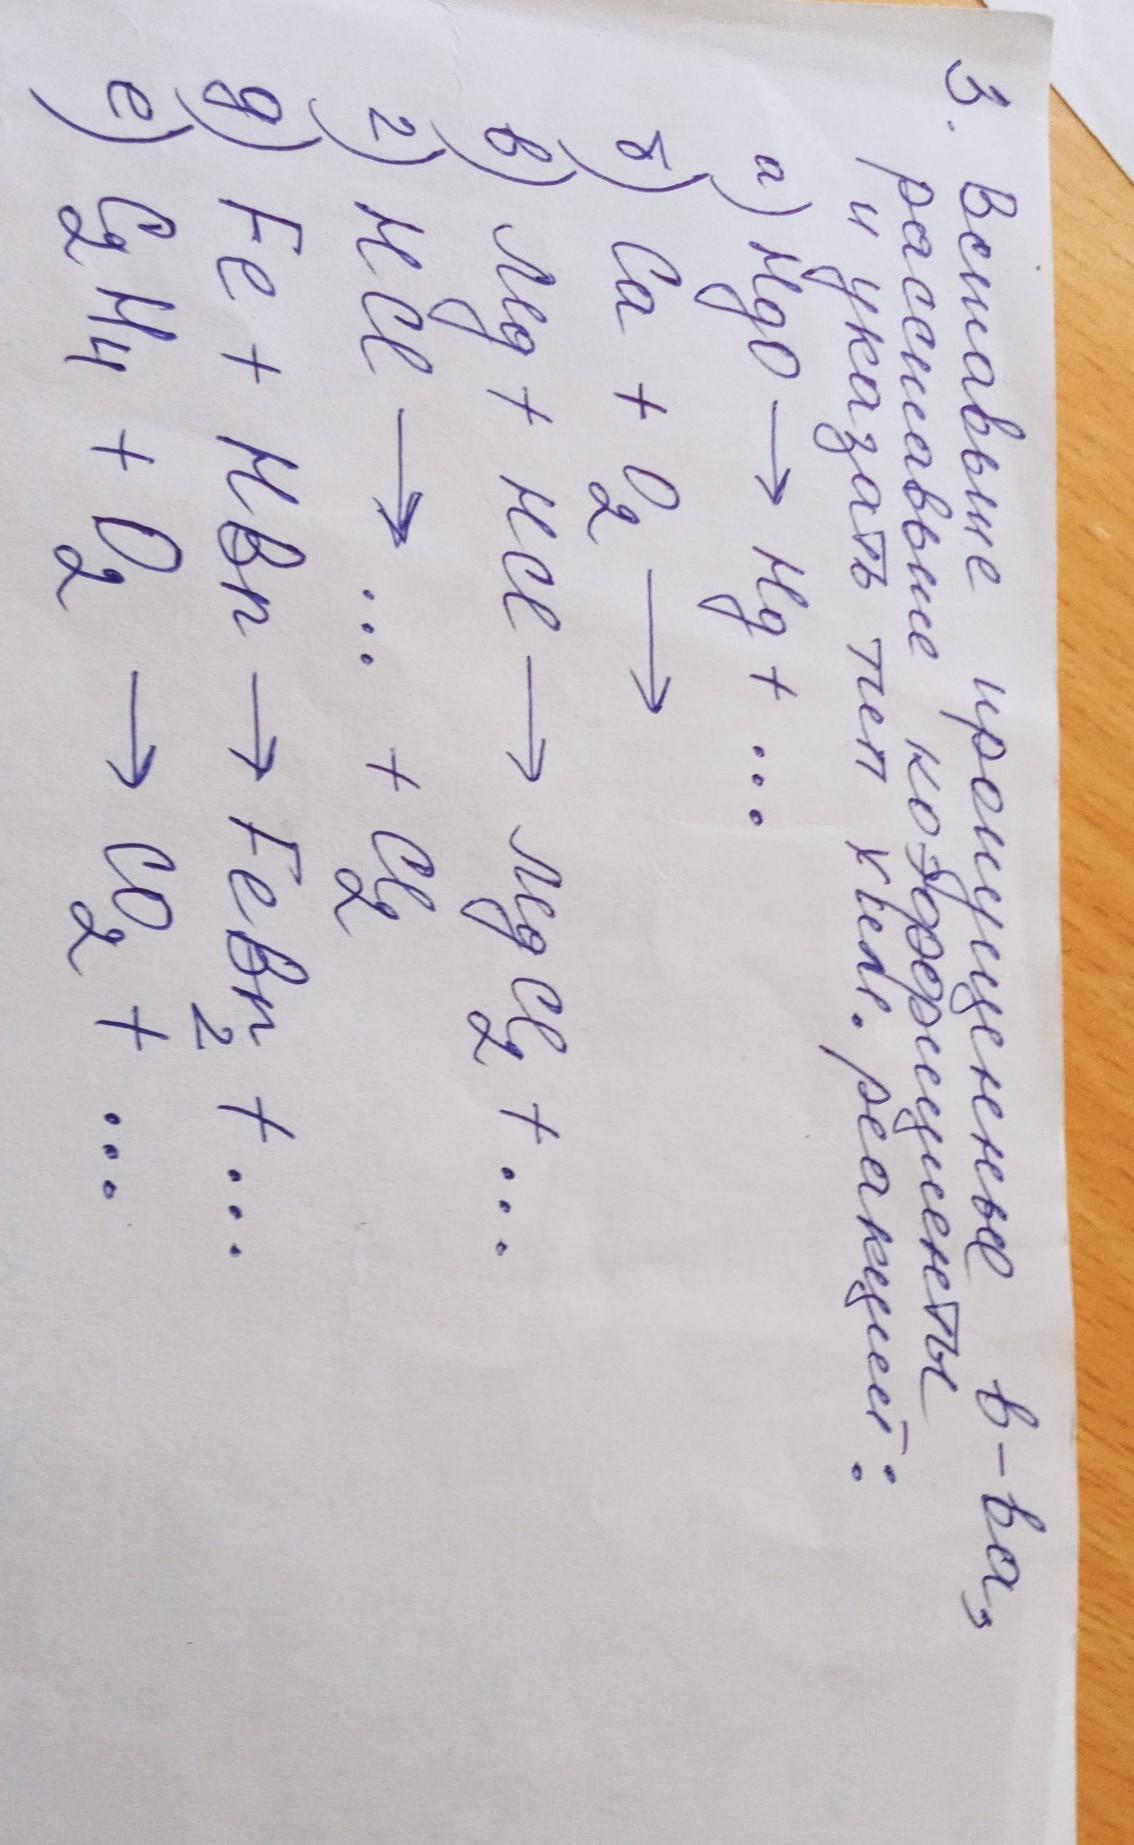 3. Вставьте пропущенные в-ва,
расставьте коэффициенты
и указать тип хим. реакций:
а) HgO → Hg + ...
б) Ca + O₂ →
в) Mg + HCl → MgCl₂ + ...
г) HCl → ... + Cl₂
д) Fe + HBr → FeBr₂ + ...
е) C₂H₄ + O₂ → CO₂ + ...